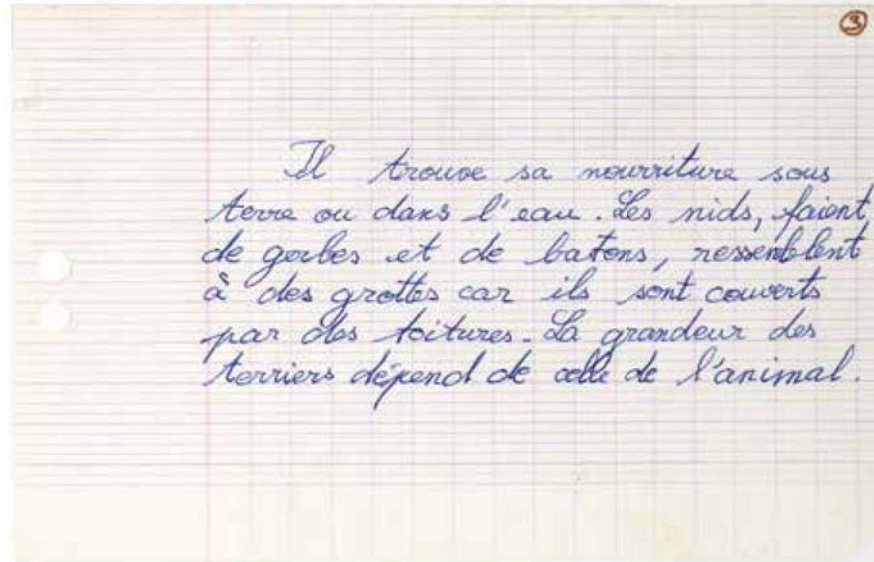 3
Il trouve sa nourriture sous
terre ou dans l'eau. Les nids, faient
de gerbes et de batons, ressemblent
à des grottes car ils sont couverts
par des toitures. La grandeur des
terriers dépend de celle de l'animal.